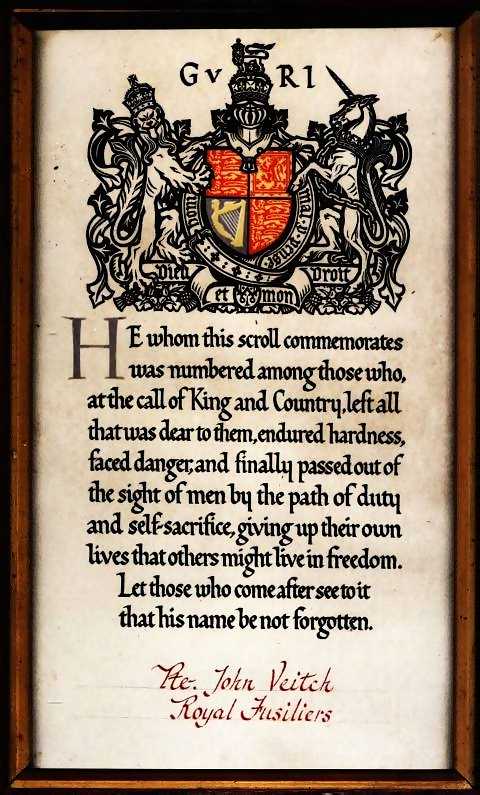 GVRI
Dieu et mon droit
HE whom this scroll commemorates
was numbered among those who,
at the call of King and Country, left all
that was dear to them, endured hardness,
faced danger, and finally passed out of
the sight of men by the path of duty
and self-sacrifice, giving up their own
lives that others might live in freedom.
Let those who come after see to it
that his name be not forgotten.
Pte. John Veitch
Royal Fusiliers